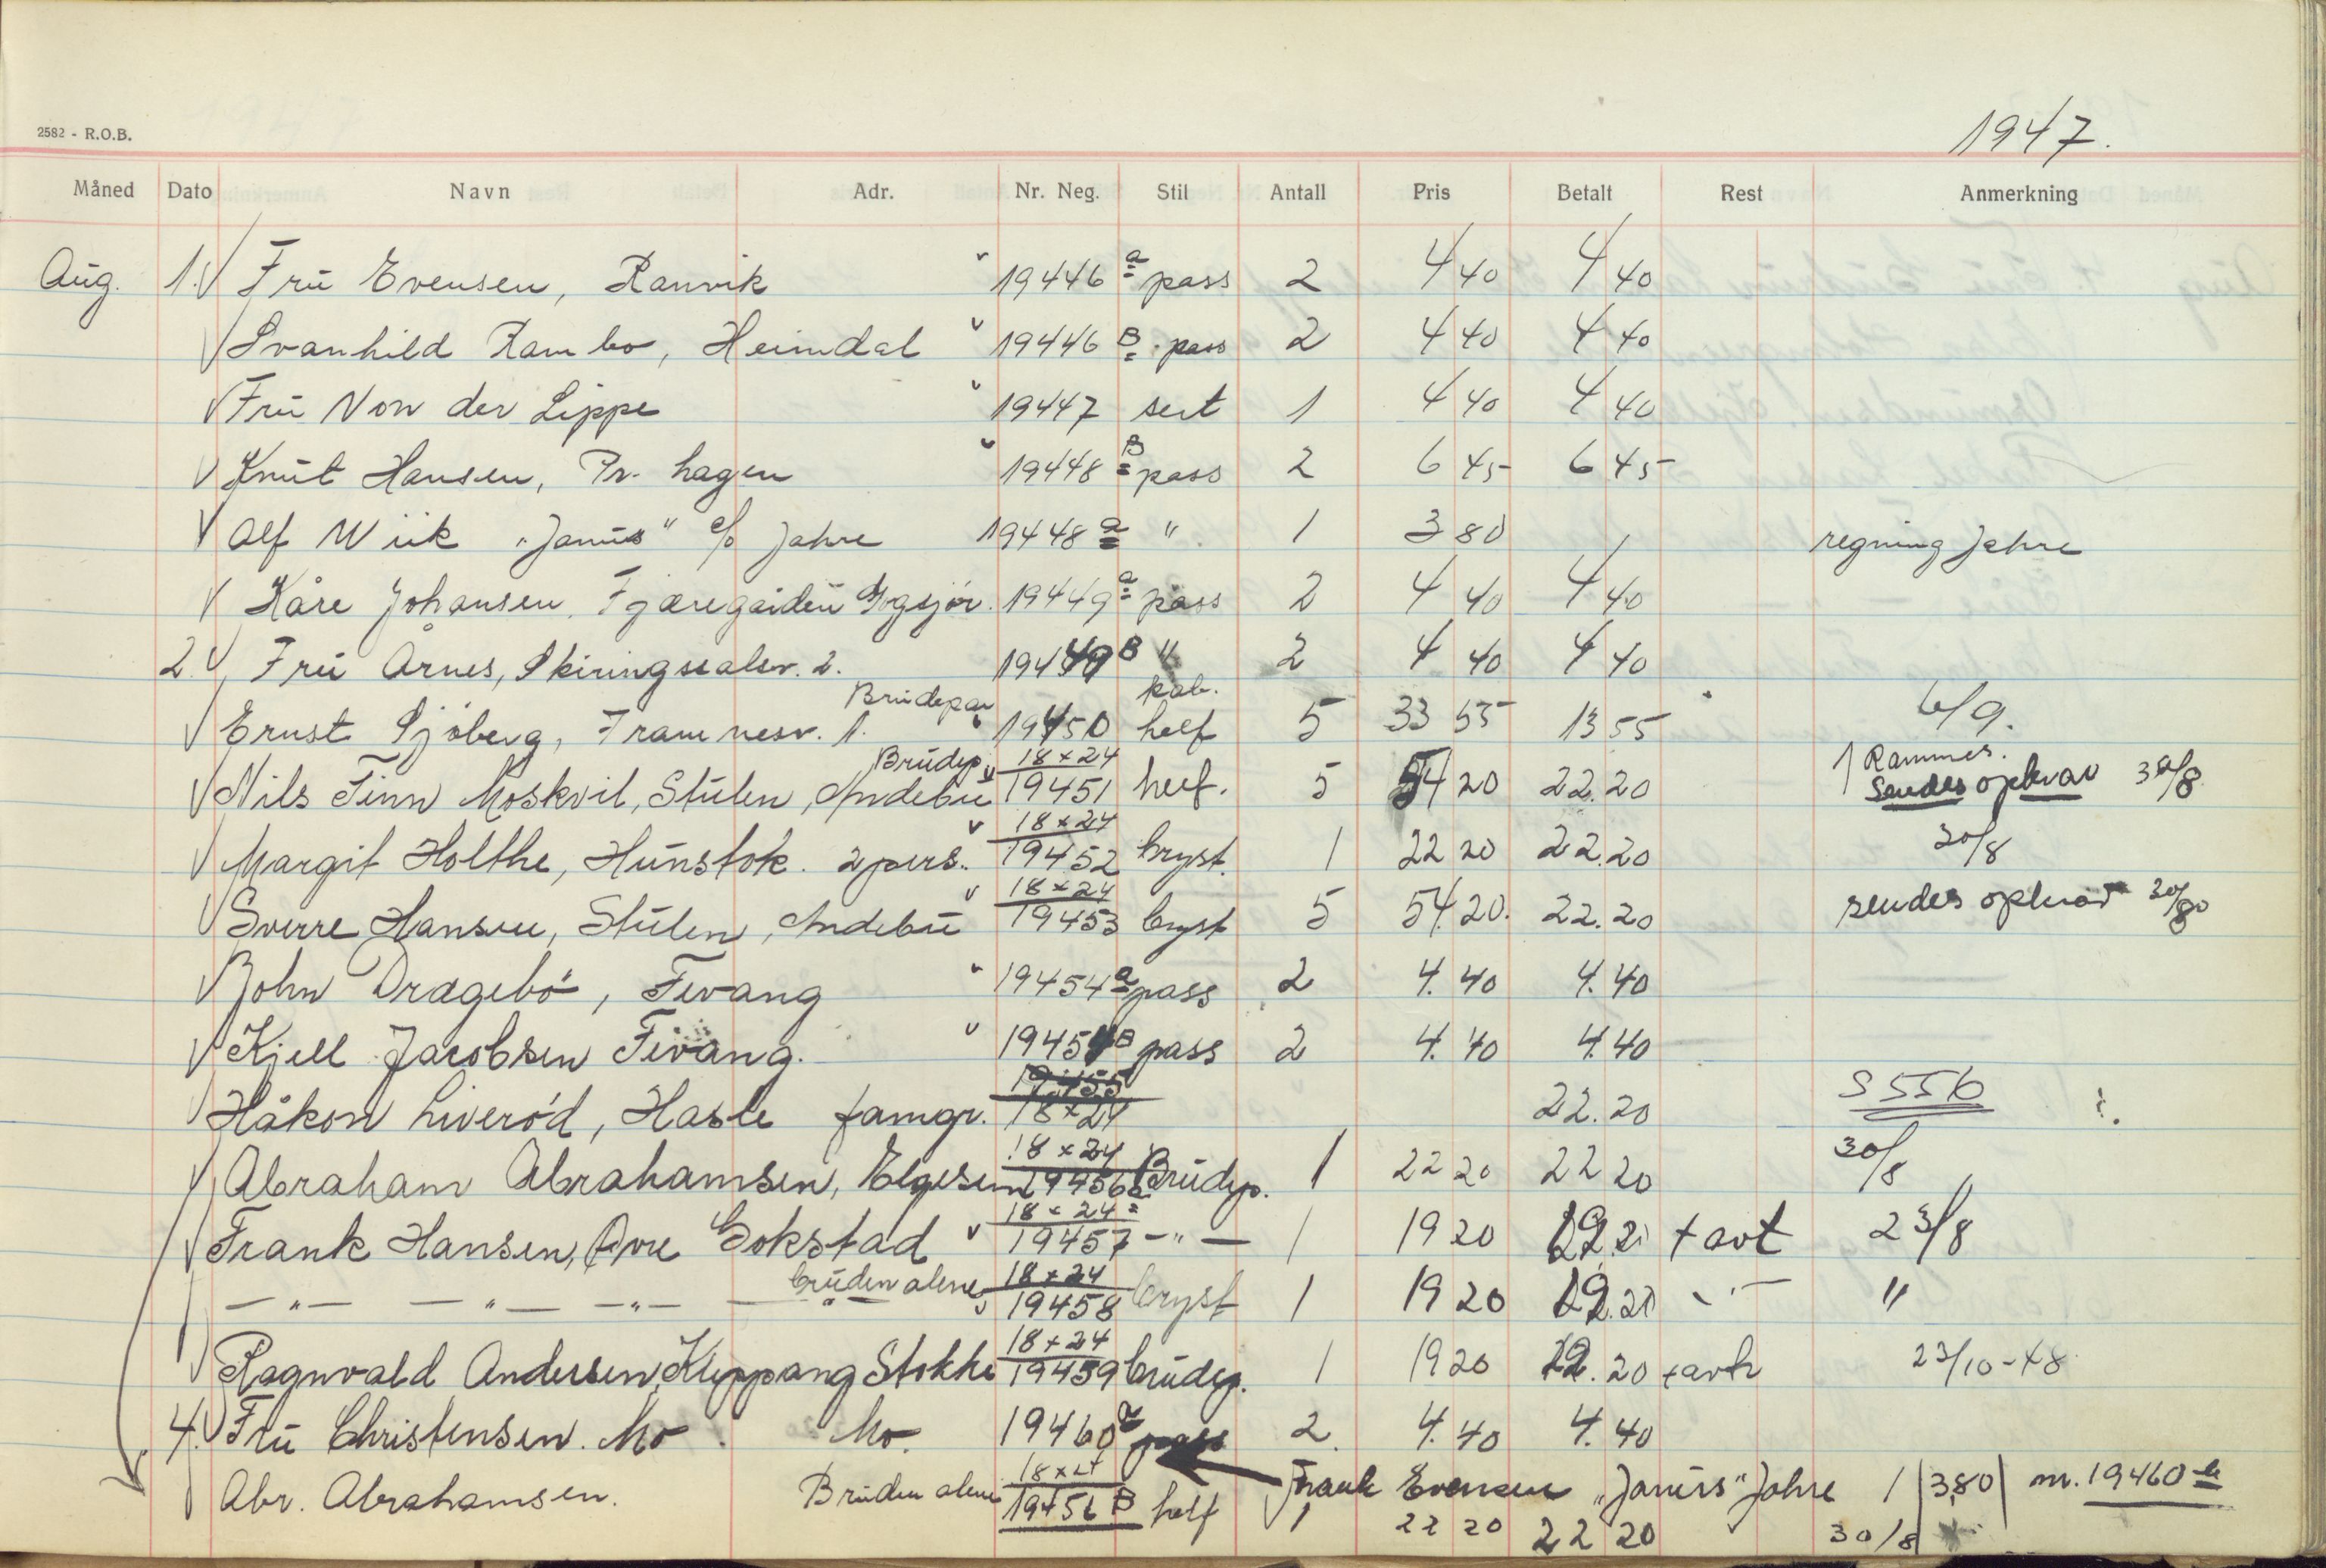 2582 - R.O.B.
1947.
Måned Dato Navn Adr. Nr. Neg. Stil Antall Pris Betalt Rest Anmerkning
Aug. 1. Frü Evensen, Ranvik 19446 a pass 2 4 40 4 40
Svanhild Rambo, Heimdal 19446 B pass 2 4 40 4 40
Frü Von der Lippe 19447 sert 1 4 40 4 40
Knüt Hansen, Pr. hagen 19448 B pass 2 6 45 6 45
Alf Wiik "Janüs" c/o Jahre 19448 a " 1 3 80 regning Jahre
Kåre Johansen, 19449 a pass 2 4 40 4 40
2. Frü Årnes, Skiringssalsv. 2. 19449 B " 2 4 40 4 40
Brüdepar kab.
Ernst Sjöberg, Framnesv. 1. 19450 helf 5 33 55 13 55 6/9.
Brüdep. 18 x 24 1 Rammes.
Nils Finn Moskvil, Stülen, Andebü 19451 helf. 5 54 20 22.20 Sendes opkrav 30/8
18 x 24
Margit Holthe, Hünstok. 2 pers. 19452 bryst. 1 22 20 22.20 30/8
18 x 24
Sverre Hansen, Stülen, Andebü 19453 bryst 5 54.20. 22.20 sendes opkrav
John Dragebö, Fevang 19454 a pass 2 4.40 4.40
Kjell Jacobsen Fevang. 19454 B pass 2 4.40 4.40
19455
Håkon Liveröd, Hasle famgr. 18 x 24 22.20 S 556
18 x 24
Abraham Abrahamsen, Elgesem 19456 a Brüdep. 1 22 20 22 20 30/8
18 x 24
Frank Hansen, Øvre Gokstad 19457 - " - 1 19 20 + avt 23/8
brüden alene 18 x 24
- " - - " - - " - - " - 19458 bryst 1 19 20 "
18 x 24
Ragnvald Andersen, Kleppang Stokke 19459 brüdep. 1 19 20 23/10-48
4. Frü Christensen. Mo. Mo. 19460 a pass 2. 4.40 4.40
18 x 24 Frank Evensen "Janüs" Jahre 1 3,80 nr. 19460 b
Abr. Abrahamsen. Brüden alene 19456 B helf 1 22 20 22 20 30/8